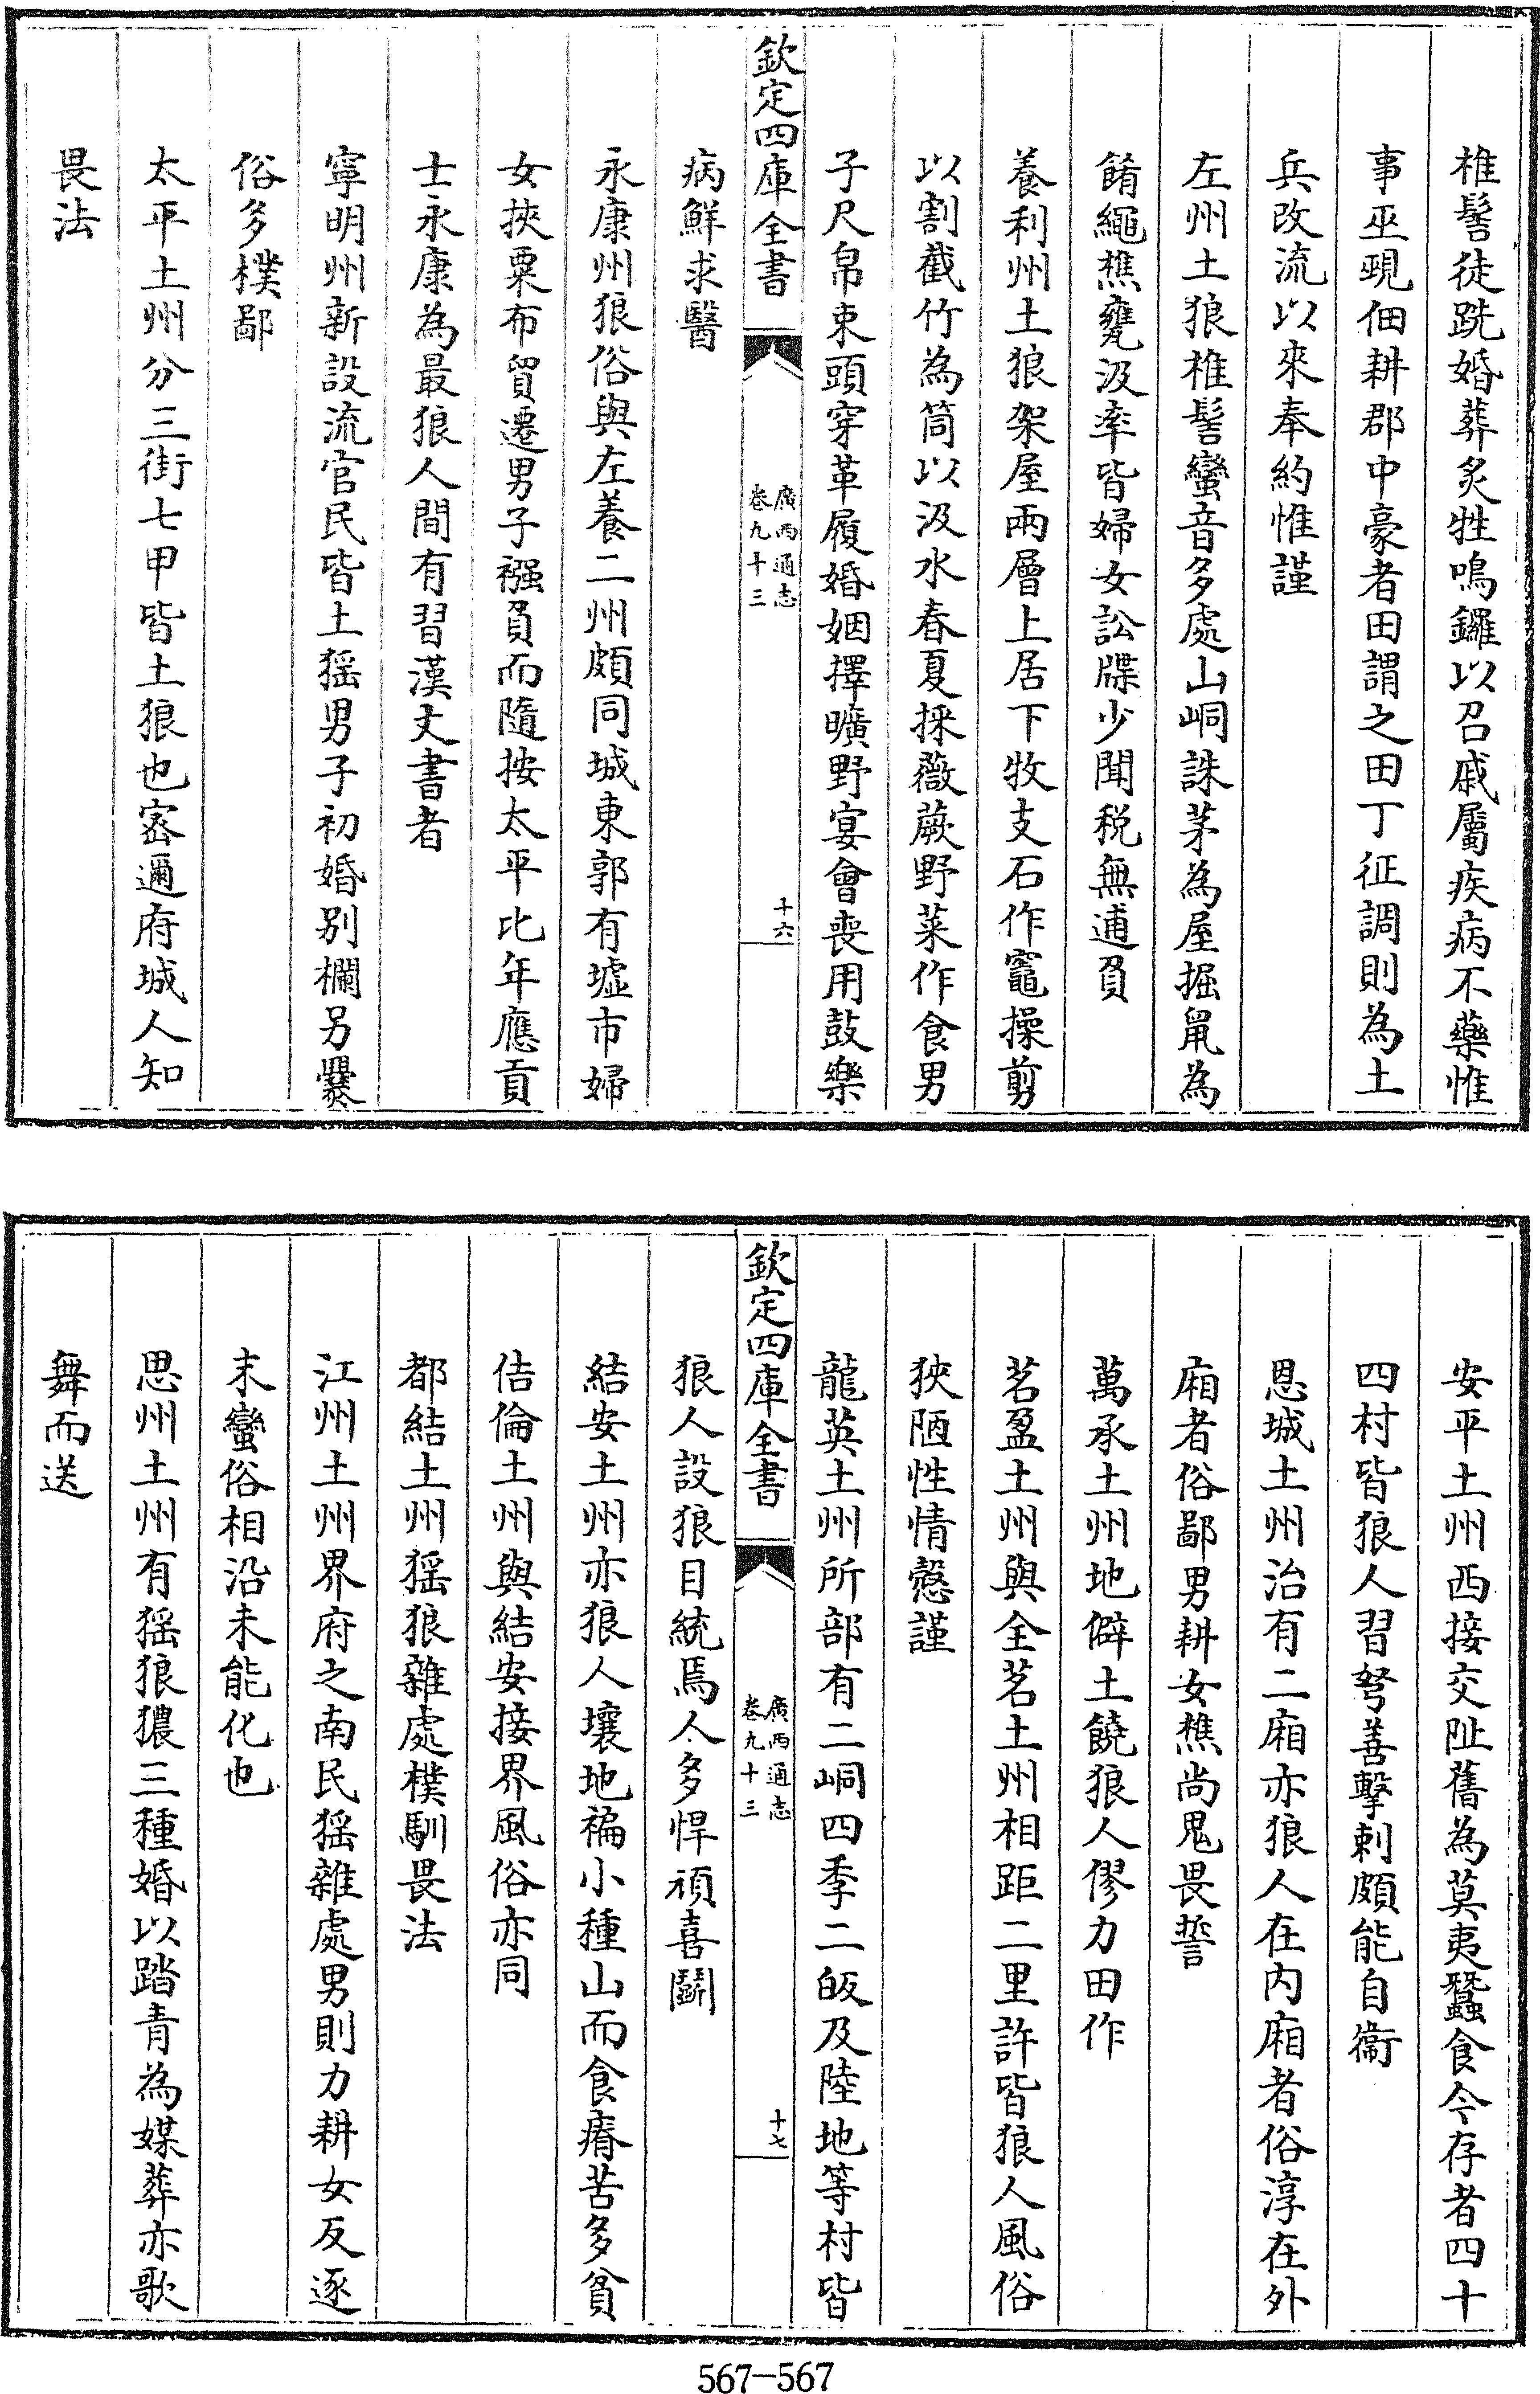 椎髻徒跣婚葬炙牲鳴鑼以召戚屬疾病不藥惟
事巫覡佃耕郡中豪者田謂之田丁征調則為土
兵改流以來奉約惟謹
左州土狼椎髻蠻音多處山峒誅茅為屋掘鼠為
餚繩樵甕汲率皆婦女訟牒少聞税無逋負
養利州土狼架屋兩層上居下牧支石作竈操剪
以割截竹為筒以汲水春夏採薇蕨野菜作食男
子尺帛束頭穿革履婚姻擇曠野宴會喪用鼓樂
欽定四庫全書
廣西通志
卷九十三
十六
病鮮求醫
永康州狼俗與左養二州頗同城東郭有墟市婦
女挾粟布貿遷男子襁負而隨按太平比年應貢
士永康為最狼人間有習漢文書者
寧明州新設流官民皆土猺男子初婚别欄另爨
俗多樸鄙
太平土州分三街七甲皆土狼也宻邇府城人知
畏法
安平土州西接交阯舊為莫夷蠶食今存者四十
四村皆狼人習弩善擊刺頗能自衞
恩城土州治有二廂亦狼人在内廂者俗淳在外
廂者俗鄙男耕女樵尚鬼畏誓
萬承土州地僻土饒狼人僇力田作
茗盈土州與全茗土州相距二里許皆狼人風俗
狹陋性情慤謹
龍英土州所部有二峒四季二皈及陸地等村皆
欽定四庫全書
廣西通志
卷九十三
十七
狼人設狼目統焉人多悍頑喜鬭
結安土州亦狼人壤地褊小種山而食瘠苦多貧
佶倫土州與結安接界風俗亦同
都結土州猺狼雜處樸馴畏法
江州土州界府之南民猺雜處男則力耕女反逐
末蠻俗相沿未能化也
思州土州有猺狼獞三種婚以踏青為媒葬亦歌
舞而送
567-567